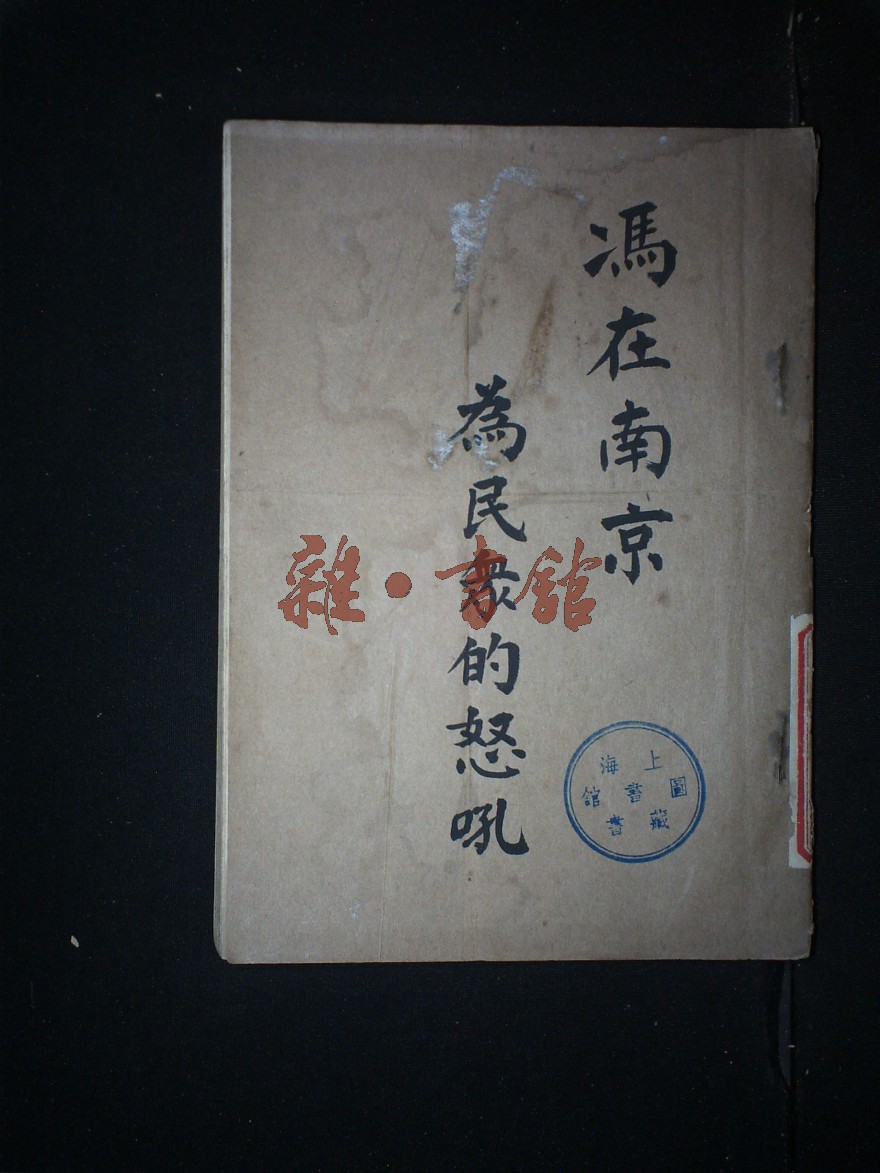 馮在南京
為民衆的怒吼
雜·書舘
上海
圖書舘
藏書